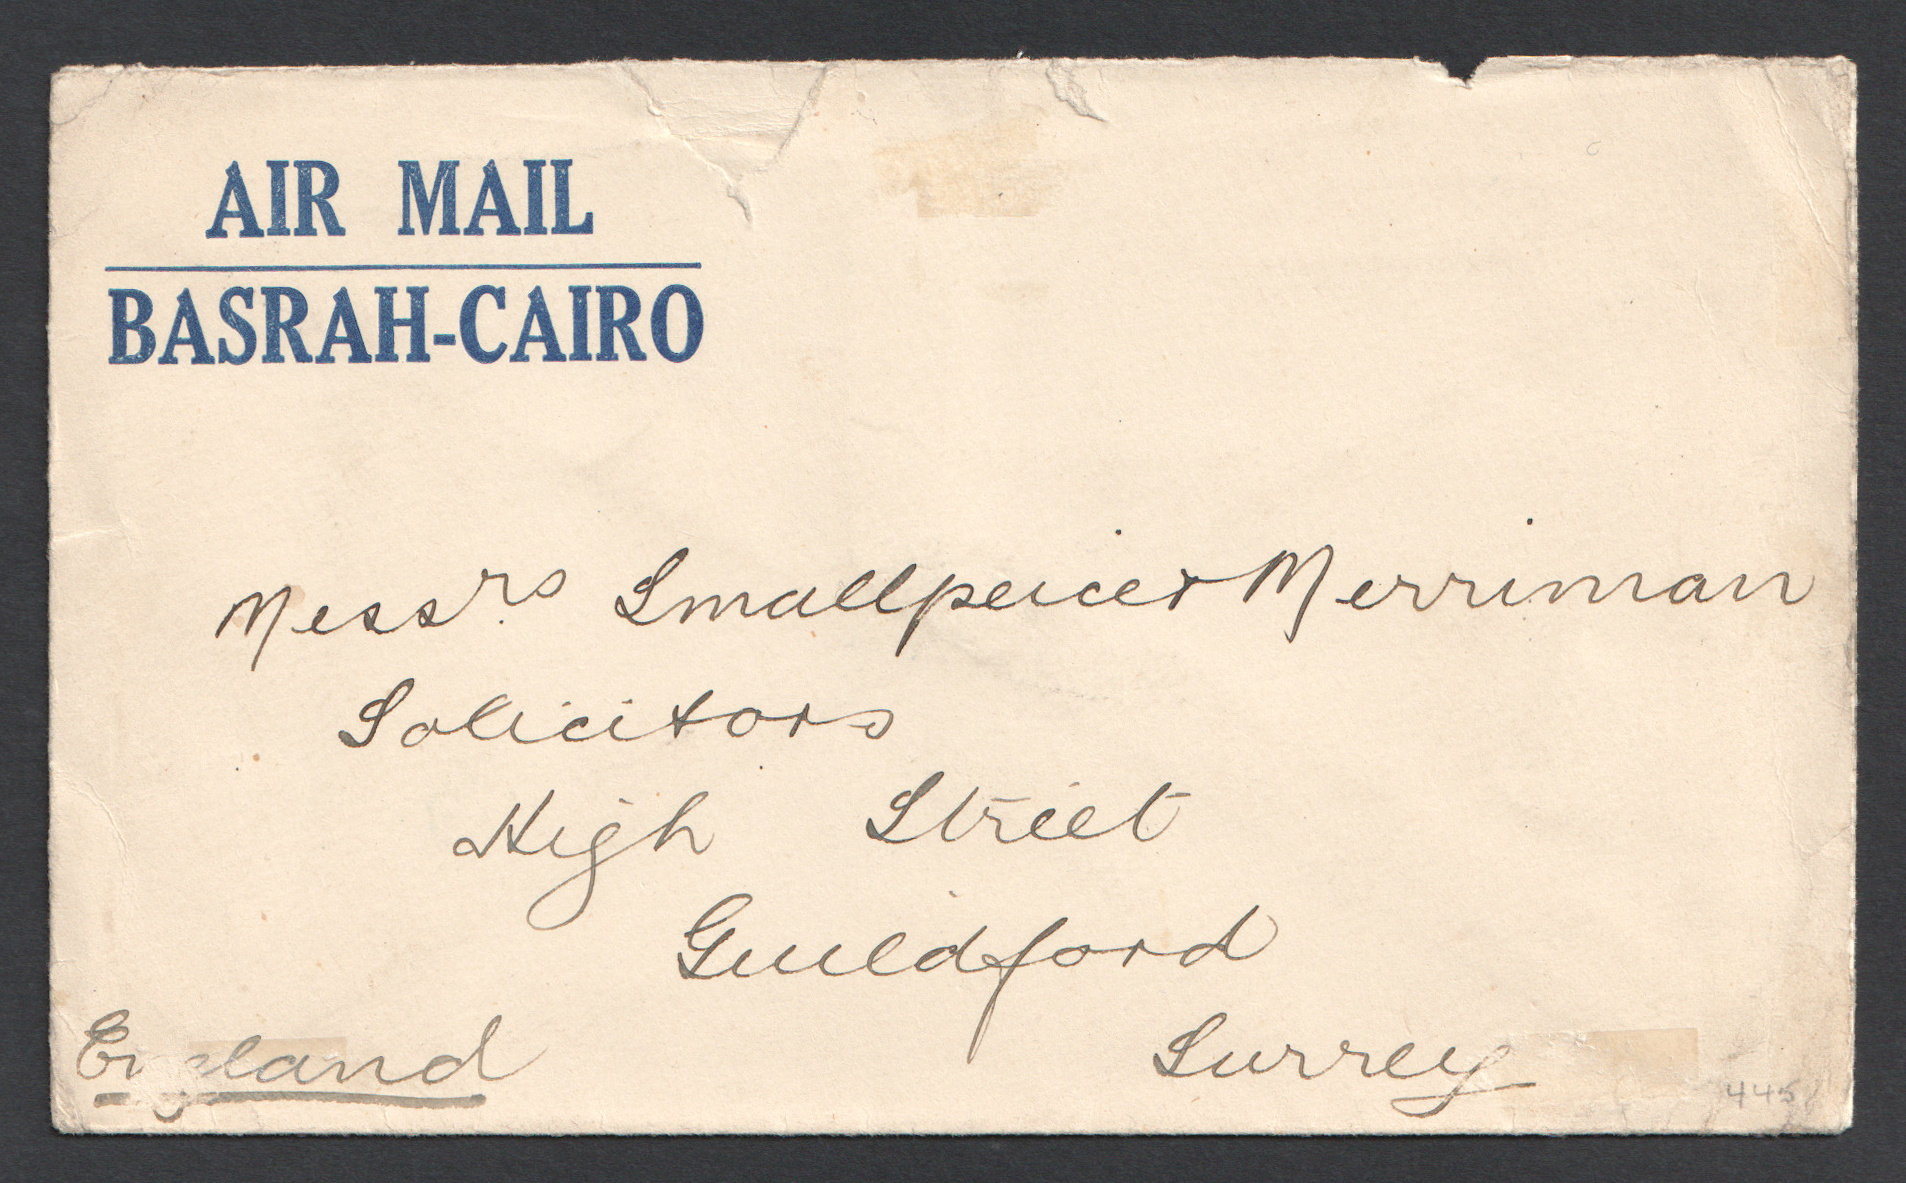 AIR MAIL
BASRAH-CAIRO
Messrs Smallpeice & Merriman
Solicitors
High Street
Guildford
Surrey
England
445